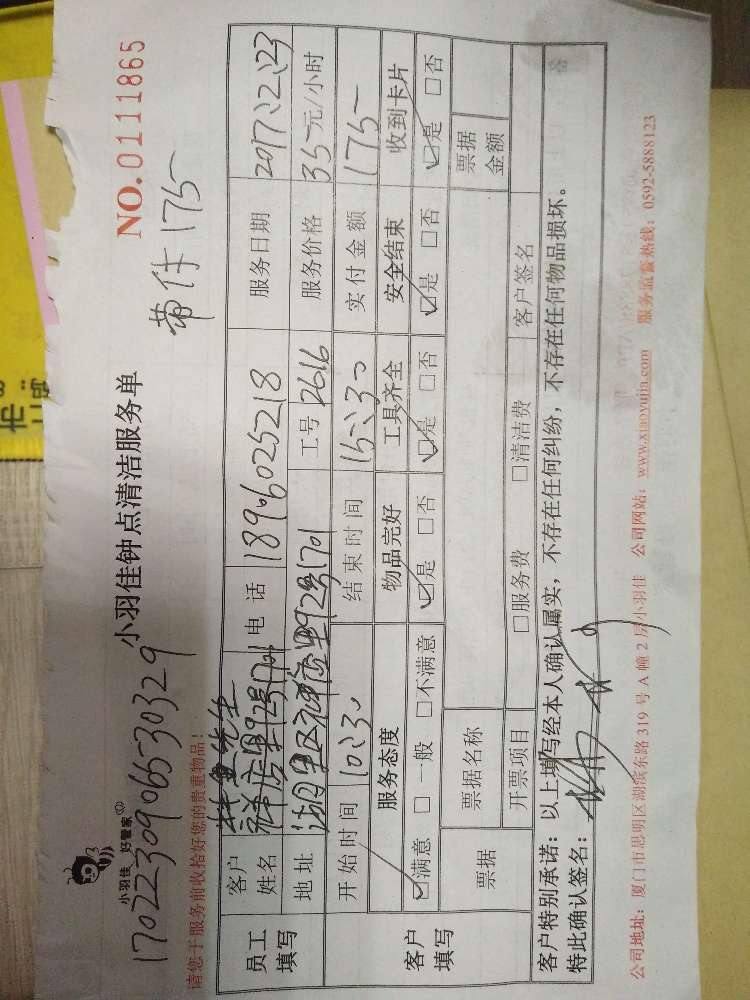 小羽佳 好管家
小羽佳钟点清洁服务单
NO.0111865
1702230906530329
带件175-
请您于服务前收拾好您的贵重物品!
员工填写
客户姓名
先生
电话 1896025218
服务日期 2017.2.23
地址 湖里区祥店里92号1701
工号 2616
服务价格 35-元/小时
客户填写
开始时间 10:30
结束时间 15:30
实付金额 175-
服务态度 物品完好 工具齐全 安全结束 收到卡片
☑满意 □一般 □不满意 ☑是 □否 ☑是 □否 ☑是 □否 ☑是 □否
票据 票据名称 票据金额
开票项目 □服务费 □清洁费 客户签名
客户特别承诺:以上填写经本人确认属实,不存在任何纠纷,不存在任何物品损坏。
特此确认签名:
公司地址:厦门市思明区湖滨东路 319 号 A 幢 2 房小羽佳 公司网站:www.xiaoyujia.com 服务监督热线:0592-5888123